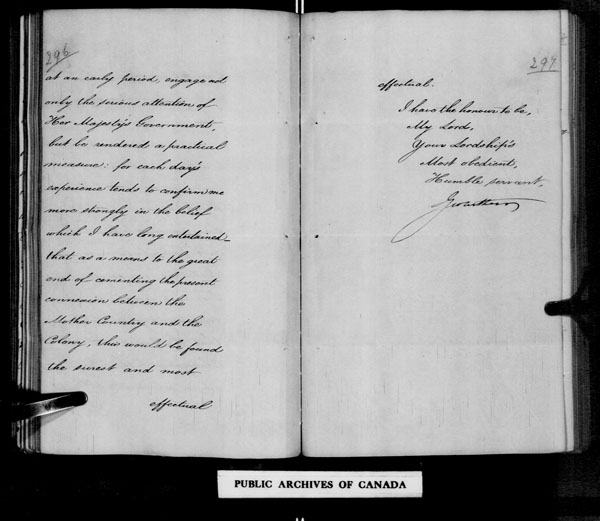 296
at an early period, engage not
only the serious attention of
Her Majesty's Government,
but be rendered a practical
measure: for each day's
experience tends to confirm me
more strongly in the belief
which I have long entertained_
that as a means to the great
end of cementing the present
connexion between the
Mother Country and the
Colony, this would be found
the surest and most
effectual
297
effectual.
I have the honour to be,
My Lord,
Your Lordship's
Most obedient,
Humble servant,
PUBLIC ARCHIVES OF CANADA